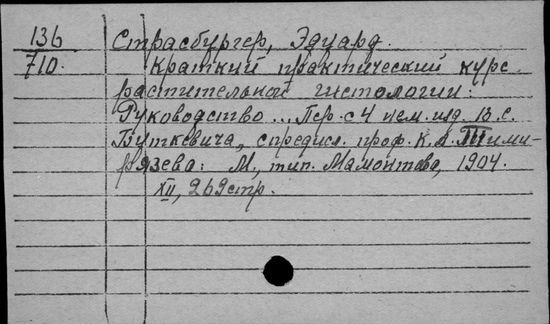 136
710.
Страсбургер, Эдуард.
Краткий практический курс
растительной гистологии:
Руководство... Пер. с 4 нем. изд. В.С.
Буткевича, с предисл. проф. К. А. Тими-
рязева: М., тип. Мамонтова, 1904.
XII, 269 стр.